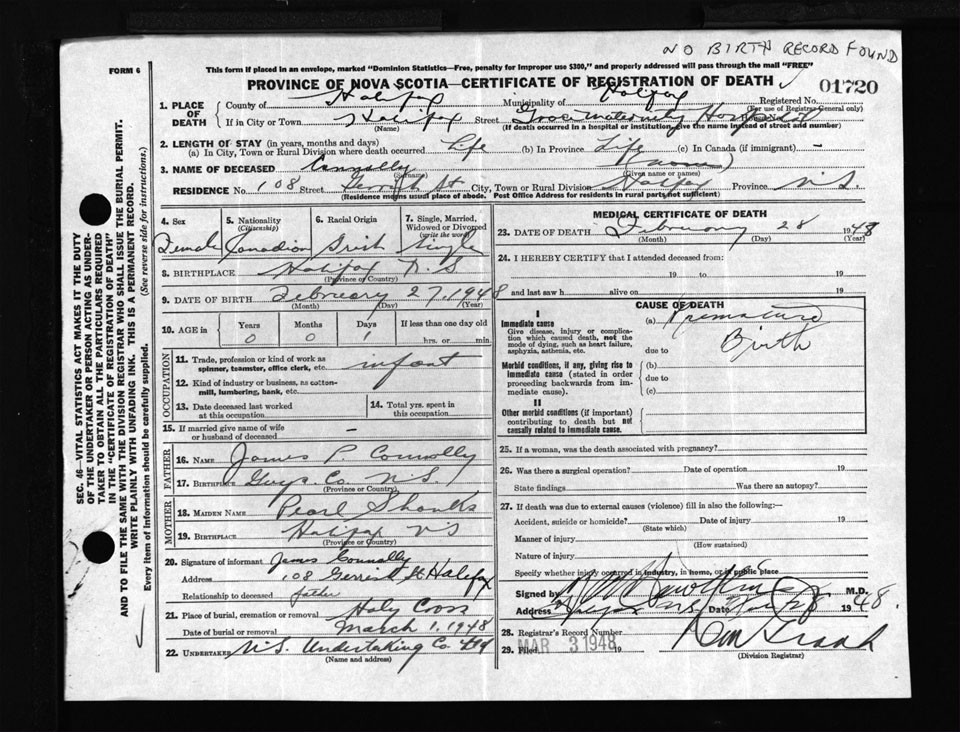 NO BIRTH RECORD FOUND
FORM 6
This form if placed in an envelope, marked "Dominion Statistics—Free, penalty for improper use $300," and properly addressed will pass through the mail "FREE"
PROVINCE OF NOVA SCOTIA—CERTIFICATE OF REGISTRATION OF DEATH
01720
1. PLACE OF DEATH
County of Halifax Municipality of Halifax Registered No.
(For use of Registrar General only)
If in City or Town Halifax Street Grace Maternity Hospital
(Name) (If death occurred in a hospital or institution, give the name instead of street and number)
2. LENGTH OF STAY (in years, months and days)
(a) In City, Town or Rural Division where death occurred Life (b) In Province Life (c) In Canada (if immigrant) -
3. NAME OF DECEASED Connolly (none)
(Surname) (Given name or names)
RESIDENCE No. 108 Street Gerrish St City, Town or Rural Division Halifax Province N.S.
(Residence means usual place of abode. Post Office Address for residents in rural parts not sufficient)
SEC. 46—VITAL STATISTICS ACT MAKES IT THE DUTY
OF THE UNDERTAKER OR PERSON ACTING AS UNDER-
TAKER TO OBTAIN ALL THE PARTICULARS REQUIRED
IN THE "CERTIFICATE OF REGISTRATION OF DEATH"
AND TO FILE THE SAME WITH THE DIVISION REGISTRAR WHO SHALL ISSUE THE BURIAL PERMIT.
WRITE PLAINLY WITH UNFADING INK. THIS IS A PERMANENT RECORD.
Every item of Information should be carefully supplied. (See reverse side for instructions.)
4. Sex 5. Nationality (Citizenship) 6. Racial Origin 7. Single, Married, Widowed or Divorced (write the word)
Female Canadian Irish Single
8. BIRTHPLACE Halifax N.S
(Province or Country)
9. DATE OF BIRTH February 27, 1948
(Month) (Day) (Year)
10. AGE in Years Months Days If less than one day old
0 0 1 hrs. or min.
OCCUPATION
11. Trade, profession or kind of work as spinner, teamster, office clerk, etc. infant
12. Kind of industry or business, as cotton-mill, lumbering, bank, etc.
13. Date deceased last worked at this occupation
14. Total yrs. spent in this occupation
15. If married give name of wife or husband of deceased -
FATHER
16. NAME James P. Connolly
17. BIRTHPLACE Guys. Co. N.S.
(Province or Country)
MOTHER
18. MAIDEN NAME Pearl Shanks
19. BIRTHPLACE Halifax N S
(Province or Country)
20. Signature of informant James Connolly
Address 108 Gerrish St Halifax
Relationship to deceased father
21. Place of burial, cremation or removal Holy Cross
Date of burial or removal March 1, 1948
22. UNDERTAKER N.S. Undertaking Co.
(Name and address)
MEDICAL CERTIFICATE OF DEATH
23. DATE OF DEATH February 28 1948
(Month) (Day) (Year)
24. I HEREBY CERTIFY that I attended deceased from:
19 to 19
and last saw h alive on 19
CAUSE OF DEATH
I
Immediate cause
Give disease, injury or complication which caused death, not the mode of dying, such as heart failure, asphyxia, asthenia, etc.
(a) Premature
Birth
due to
Morbid conditions, if any, giving rise to immediate cause (stated in order proceeding backwards from immediate cause).
(b)
due to
(c)
II
Other morbid conditions (if important) contributing to death but not causally related to immediate cause.
25. If a woman, was the death associated with pregnancy?
26. Was there a surgical operation? Date of operation 19
State findings Was there an autopsy?
27. If death was due to external causes (violence) fill in also the following:—
Accident, suicide or homicide? Date of injury 19
(State which)
Manner of injury
(How sustained)
Nature of injury
Specify whether injury occurred in industry, in home, or in public place
Signed by M.D.
Address N.S. Date 28 1948.
28. Registrar's Record Number
29. Filed MAR 3 1948 19
(Division Registrar)